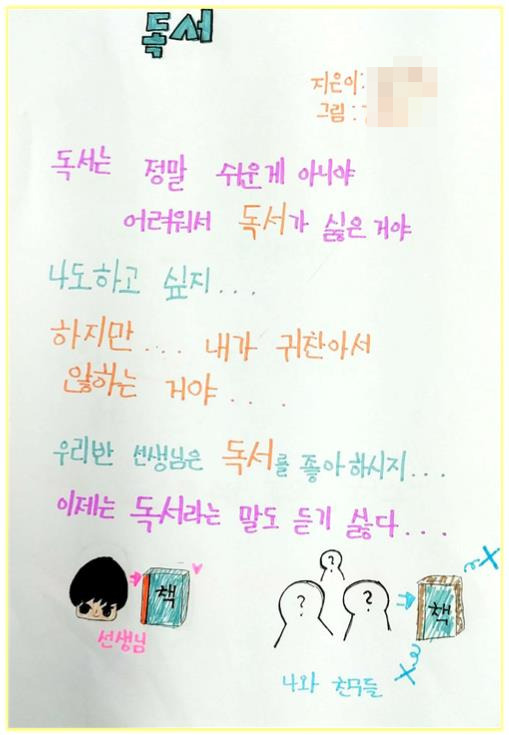 독서
지은이:
그림:
독서는 정말 쉬운게 아니야
어려워서 독서가 싫은 거야
나도하고 싶지...
하지만.... 내가 귀찬아서
않하는 거야....
우리반 선생님은 독서를 좋아하시지...
이제는 독서라는 말도 듣기 싫다...
책
선생님
? ? ?
책
나와 친구들